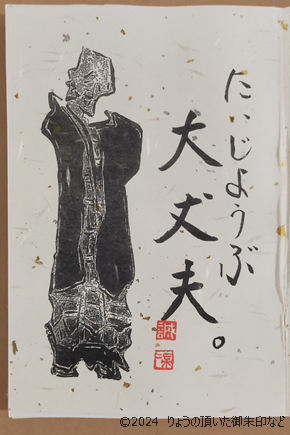 だいじょうぶ
大丈夫。
誠
©2024 りょうの頂いた御朱印など